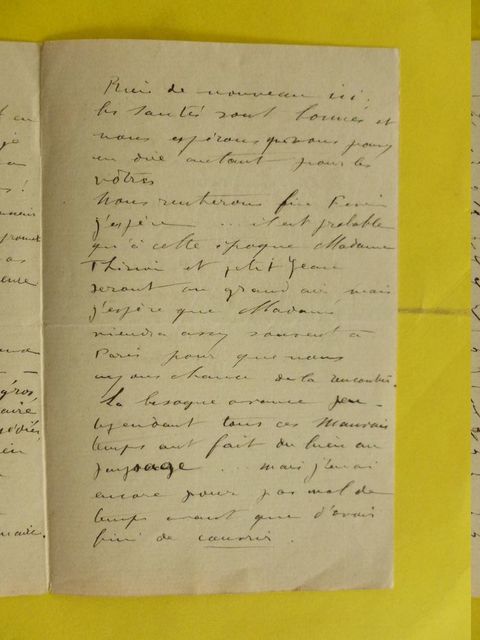 Rien de nouveau ici ;
les santés sont bonnes et
nous espérons que vous pouvez
en dire autant pour les
vôtres
Nous rentrerons fin
j'espère ... il est probable
qu'à cette époque Madame
et petit Jean
seront au grand air mais
j'espère que Madame
viendra assez souvent à
Paris pour que nous
ayons chance de la rencontrer.
La besogne avance peu
cependant tous ces mauvais
temps ont fait du bien au
paysage ... mais j'en ai
encore pour pas mal de
temps avant que d'avoir
fini de courir.
gros,